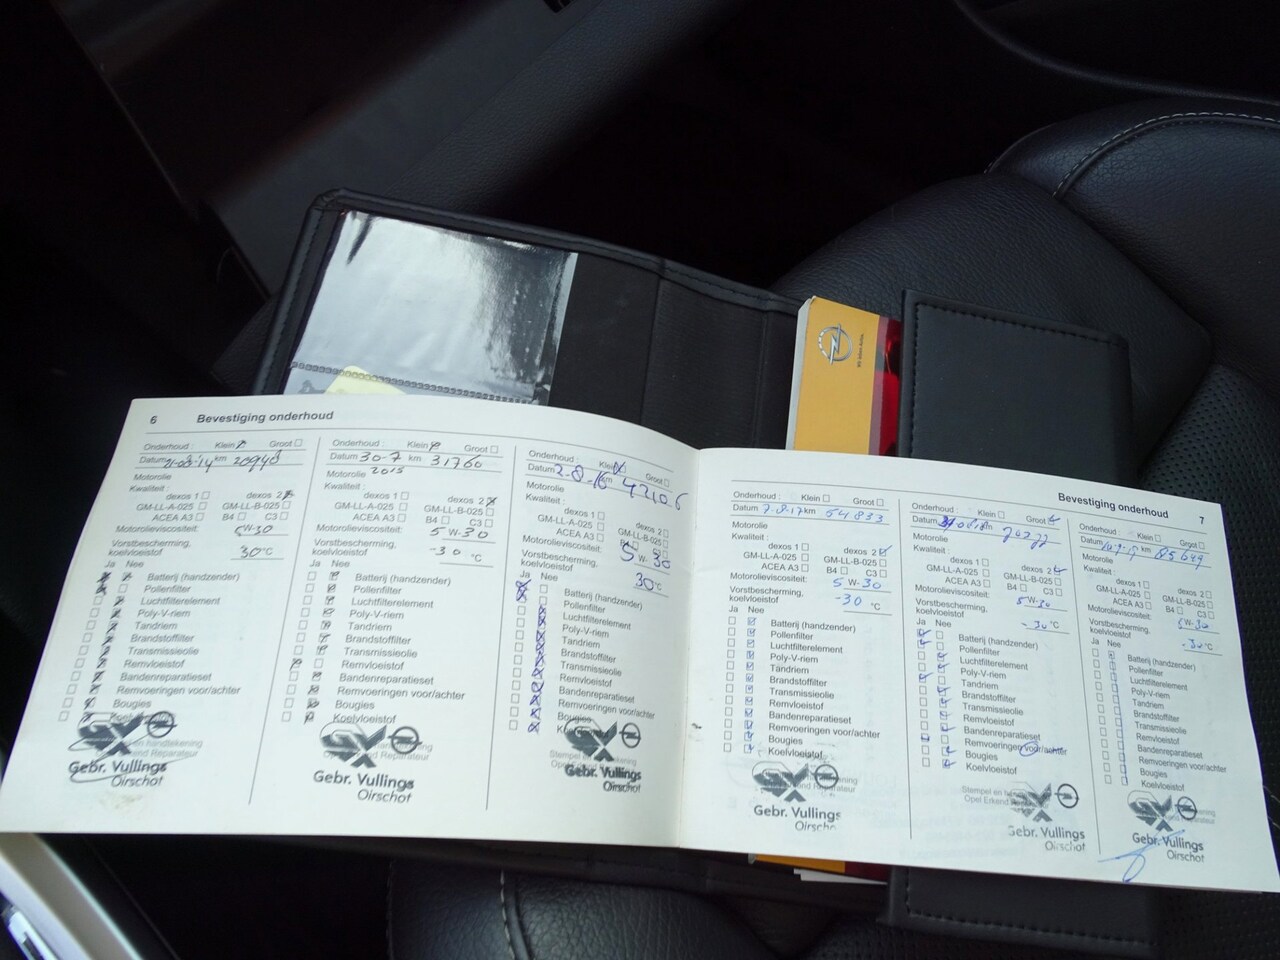 6 Bevestiging onderhoud
Onderhoud : Klein Groot
Datum 21-08-14 km 20948
Motorolie
Kwaliteit :
dexos 1 dexos 2
GM-LL-A-025 GM-LL-B-025
ACEA A3 B4 C3
Motorolieviscositeit: 5W-30
Vorstbescherming,
koelvloeistof 30 °C
Ja Nee
Batterij (handzender)
Pollenfilter
Luchtfilterelement
Poly-V-riem
Tandriem
Brandstoffilter
Transmissieolie
Remvloeistof
Bandenreparatieset
Remvoeringen voor/achter
Bougies
Koelvloeistof
Gebr. Vullings
Oirschot
Onderhoud : Klein Groot
Datum 30-7 km 31760
Motorolie 2015
Kwaliteit :
dexos 1 dexos 2
GM-LL-A-025 GM-LL-B-025
ACEA A3 B4 C3
Motorolieviscositeit: 5W-30
Vorstbescherming,
koelvloeistof -30 °C
Ja Nee
Batterij (handzender)
Pollenfilter
Luchtfilterelement
Poly-V-riem
Tandriem
Brandstoffilter
Transmissieolie
Remvloeistof
Bandenreparatieset
Remvoeringen voor/achter
Bougies
Koelvloeistof
Gebr. Vullings
Oirschot
Onderhoud : Klein Groot
Datum 2-8-16 km 42106
Motorolie
Kwaliteit :
dexos 1 dexos 2
GM-LL-A-025 GM-LL-B-025
ACEA A3 B4 C3
Motorolieviscositeit: 5W-30
Vorstbescherming,
koelvloeistof 30 °C
Ja Nee
Batterij (handzender)
Pollenfilter
Luchtfilterelement
Poly-V-riem
Tandriem
Brandstoffilter
Transmissieolie
Remvloeistof
Bandenreparatieset
Remvoeringen voor/achter
Bougies
Stempel en
Gebr. Vullings
Oirschot
Bevestiging onderhoud 7
Onderhoud : Klein Groot
Datum 7-8-17 km 54833
Motorolie
Kwaliteit :
dexos 1 dexos 2
GM-LL-A-025 GM-LL-B-025
ACEA A3 B4 C3
Motorolieviscositeit: 5W-30
Vorstbescherming,
koelvloeistof -30 °C
Ja Nee
Batterij (handzender)
Pollenfilter
Luchtfilterelement
Poly-V-riem
Tandriem
Brandstoffilter
Transmissieolie
Remvloeistof
Bandenreparatieset
Remvoeringen voor/achter
Bougies
Koelvloeistof
Gebr. Vullings
Onderhoud : Klein Groot
Datum
Motorolie
Kwaliteit :
dexos 1 dexos 2
GM-LL-A-025 GM-LL-B-025
ACEA A3 B4 C3
Motorolieviscositeit: 5W-30
Vorstbescherming,
koelvloeistof -30 °C
Ja Nee
Batterij (handzender)
Pollenfilter
Luchtfilterelement
Poly-V-riem
Tandriem
Brandstoffilter
Transmissieolie
Remvloeistof
Bandenreparatieset
Remvoeringen voor/achter
Bougies
Koelvloeistof
Stempel en
Opel Erkend
Gebr. Vullings
Oirschot
Onderhoud : Klein Groot
Datum km 85699
Motorolie
Kwaliteit :
dexos 1 dexos 2
GM-LL-A-025 GM-LL-B-025
ACEA A3 B4 C3
Motorolieviscositeit: 5W-30
Vorstbescherming,
koelvloeistof -30 °C
Ja Nee
Batterij (handzender)
Pollenfilter
Luchtfilterelement
Poly-V-riem
Tandriem
Brandstoffilter
Transmissieolie
Remvloeistof
Bandenreparatieset
Remvoeringen voor/achter
Bougies
Koelvloeistof
Gebr. Vullings
Oirschot
Wir leben Autos.